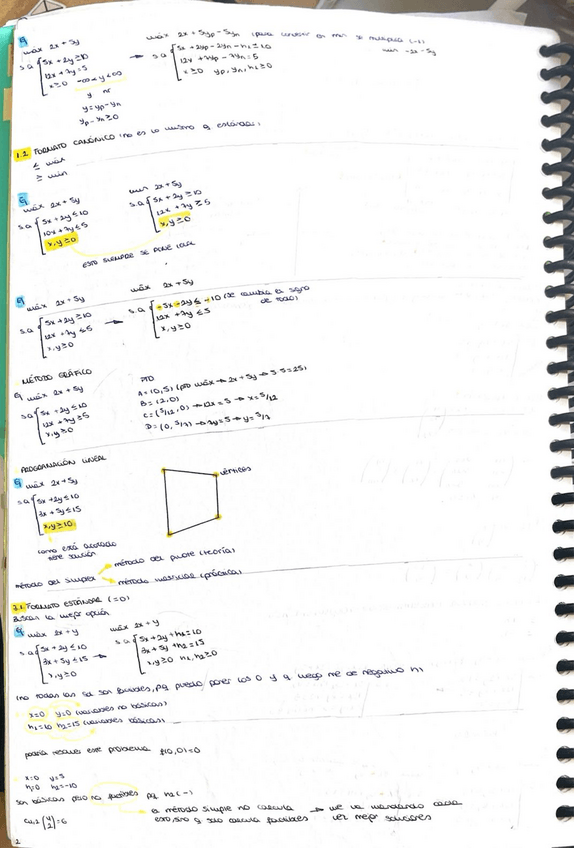 Ej
máx 2x + 5y
s.a 5x + 2y ≥ 10
12x + 7y = 5
x ≥ 0 -∞ < y < ∞
y nr
y = yp - yn
yp - yn ≥ 0
máx 2x + 5yp - 5yn (para convertir en min se multiplica (-1))
min -2x - 5y
s.a 5x + 2yp - 2yn - h1 = 10
12x + 7yp - 7yn = 5
x ≥ 0 yp, yn, h1 ≥ 0
1.2 FORMATO CANÓNICO (no es lo mismo q estándar)
≤ máx
≥ min
Ej
máx 2x + 5y
s.a 5x + 2y ≤ 10
10x + 7y ≤ 5
x, y ≥ 0
min 2x + 5y
s.a 5x + 2y ≥ 10
12x + 7y ≥ 5
x, y ≥ 0
ESTO SIEMPRE SE PONE IGUAL
Ej
máx 2x + 5y
s.a 5x + 2y ≥ 10
12x + 7y ≤ 5
x, y ≥ 0
máx 2x + 5y
s.a -5x - 2y ≤ -10 (se cambia el signo de todo)
12x + 7y ≤ 5
x, y ≥ 0
MÉTODO GRÁFICO
Ej máx 2x + 5y
s.a 5x + 2y ≤ 10
12x + 7y ≥ 5
x, y ≥ 0
PTO
A = (0, 5) (pto máx → 2x + 5y → 5·5 = 25)
B = (2, 0)
C = (5/12, 0) → 12x = 5 → x = 5/12
D = (0, 5/7) → 7y = 5 → y = 5/7
PROGRAMACIÓN LINEAL
Ej máx 2x + 5y
s.a 5x + 2y ≤ 10
3x + 5y ≤ 15
x, y ≥ 0
vértices
como está acotado
tiene solución
método del simplex
método del pivote (teoría)
método matricial (práctica)
2.1 FORMATO ESTÁNDAR (=0)
Buscan la mejor opción
Ej máx 2x + y
s.a 5x + 2y ≤ 10
3x + 5y ≤ 15
x, y ≥ 0
máx 2x + y
s.a 5x + 2y + h1 = 10
3x + 5y + h2 = 15
x, y ≥ 0 h1, h2 ≥ 0
(no todas las sol son factibles, pq puedo poner los 0 y q luego me de negativo h)
x = 0 y = 0 (variables no básicas)
h1 = 10 h2 = 15 (variables básicas)
podría resolver este problema f(0,0) = 0
x = 0 y = 5
h1 = 0 h2 = -10
son básicas pero no factibles pq h2 (-)
el método simplex no calcula
esto, sino q solo calcula factibles
→ me va mandando cada
vez mejor soluciones
2